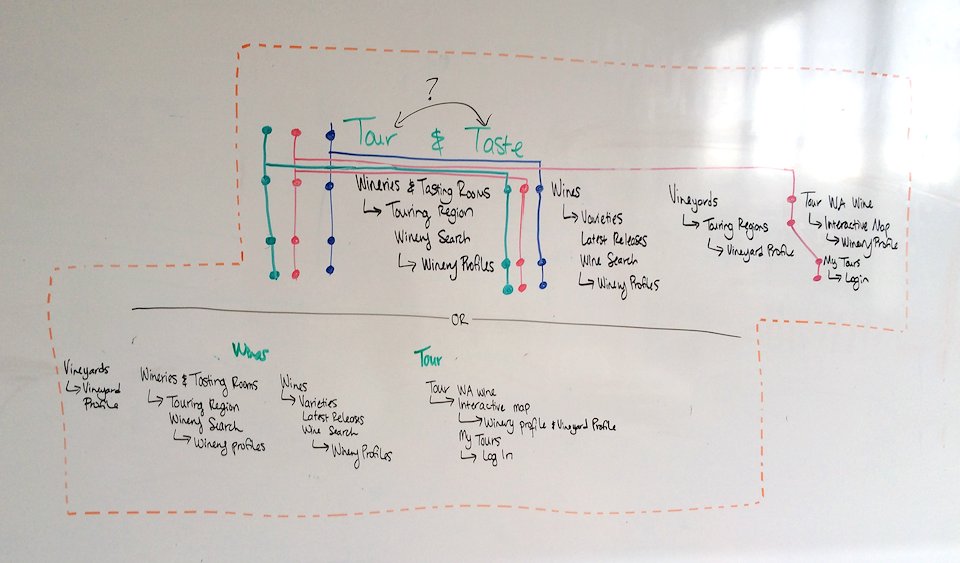 ?
Tour & Taste
Wineries & Tasting Rooms
↳ Touring Region
Winery Search
↳ Winery Profiles
Wines
↳ Varieties
Latest Releases
Wine Search
↳ Winery Profiles
Vineyards
↳ Touring Regions
↳ Vineyard Profile
Tour WA Wine
↳ Interactive Map
↳ Winery Profile
My Tours
↳ Login
OR
Wines
Vineyards
↳ Vineyard
Profile
Wineries & Tasting Rooms
↳ Touring Region
Winery Search
↳ Winery profiles
Wines
↳ Varieties
Latest Releases
Wine Search
↳ Winery Profiles
Tour
Tour WA wine
↳ Interactive map
↳ Winery profile & Vineyard Profile
My Tours
↳ Log In